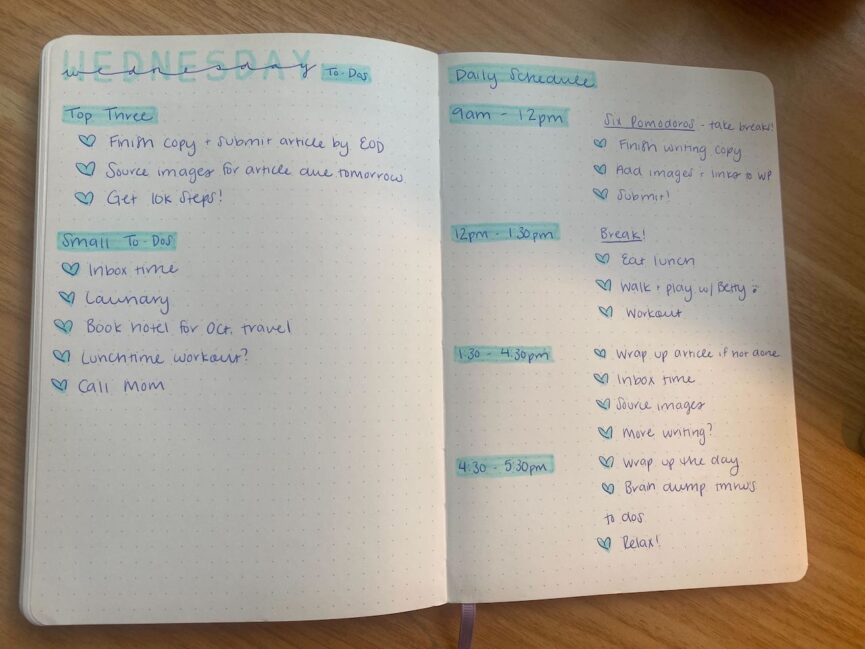 WEDNESDAY
wednesday To-Dos
Top Three
Finish copy + submit article by EOD
Source images for article due tomorrow
Get 10k steps!
Small To-Dos
Inbox time
Laundry
Book hotel for Oct. travel
Lunchtime workout?
Call Mom
Daily Schedule
9am - 12pm
Six Pomodoros - take breaks!
Finish writing copy
Add images + links to WP
Submit!
12pm - 1:30pm
Break!
Eat lunch
Walk + play w/ Betty
Workout
1:30 - 4:30pm
Wrap up article if not done
Inbox time
Source images
More writing?
4:30 - 5:30pm
Wrap up the day
Brain dump tmrw's
to dos
Relax!